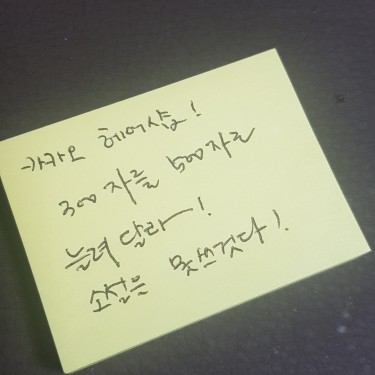 카카오 헤어샵!
300자를 500자로
늘려달라!
소설은 못쓰겠다!